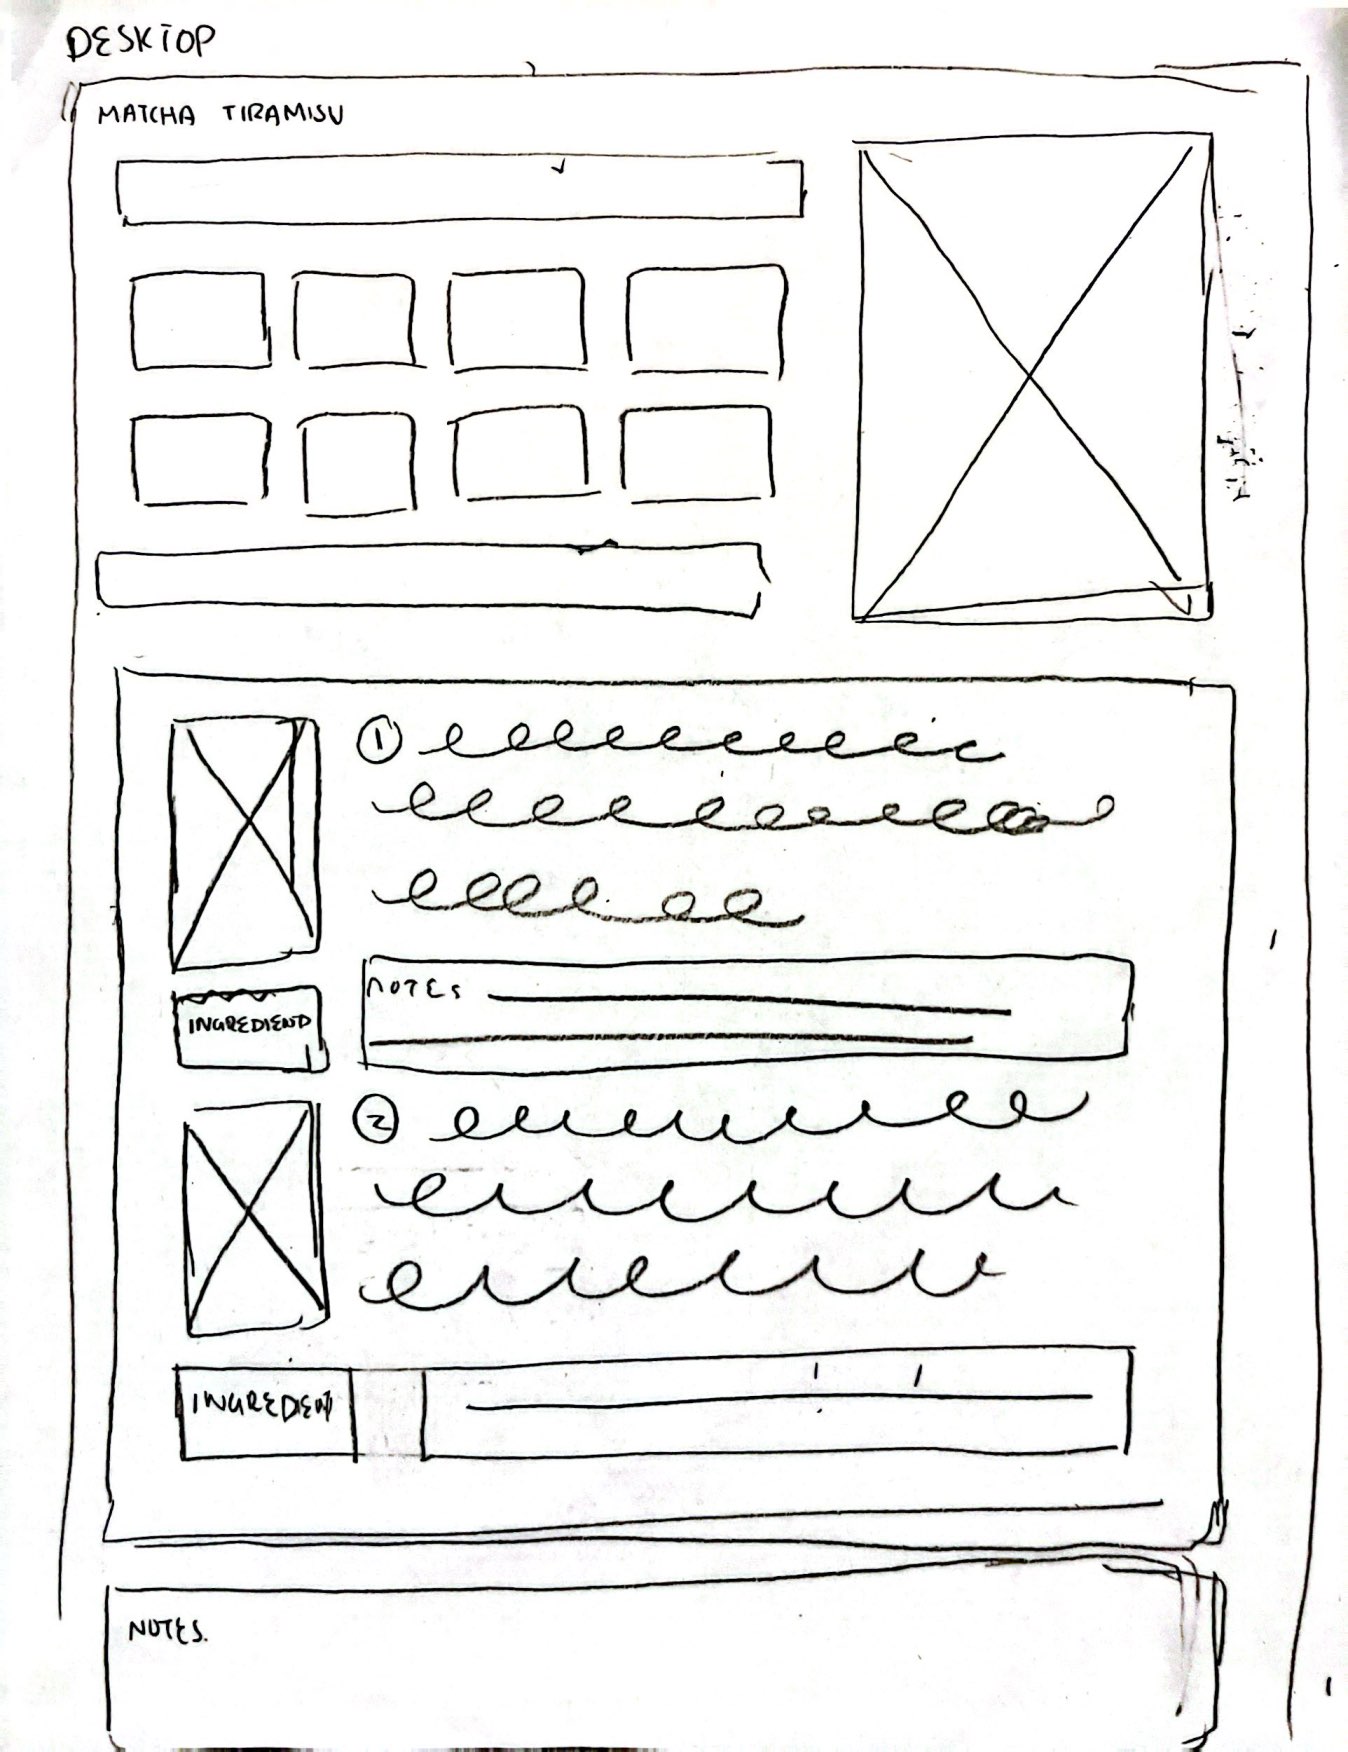 DESKTOP
MATCHA TIRAMISU
1
NOTES
INGREDIENT
2
INGREDIENT
NOTES.